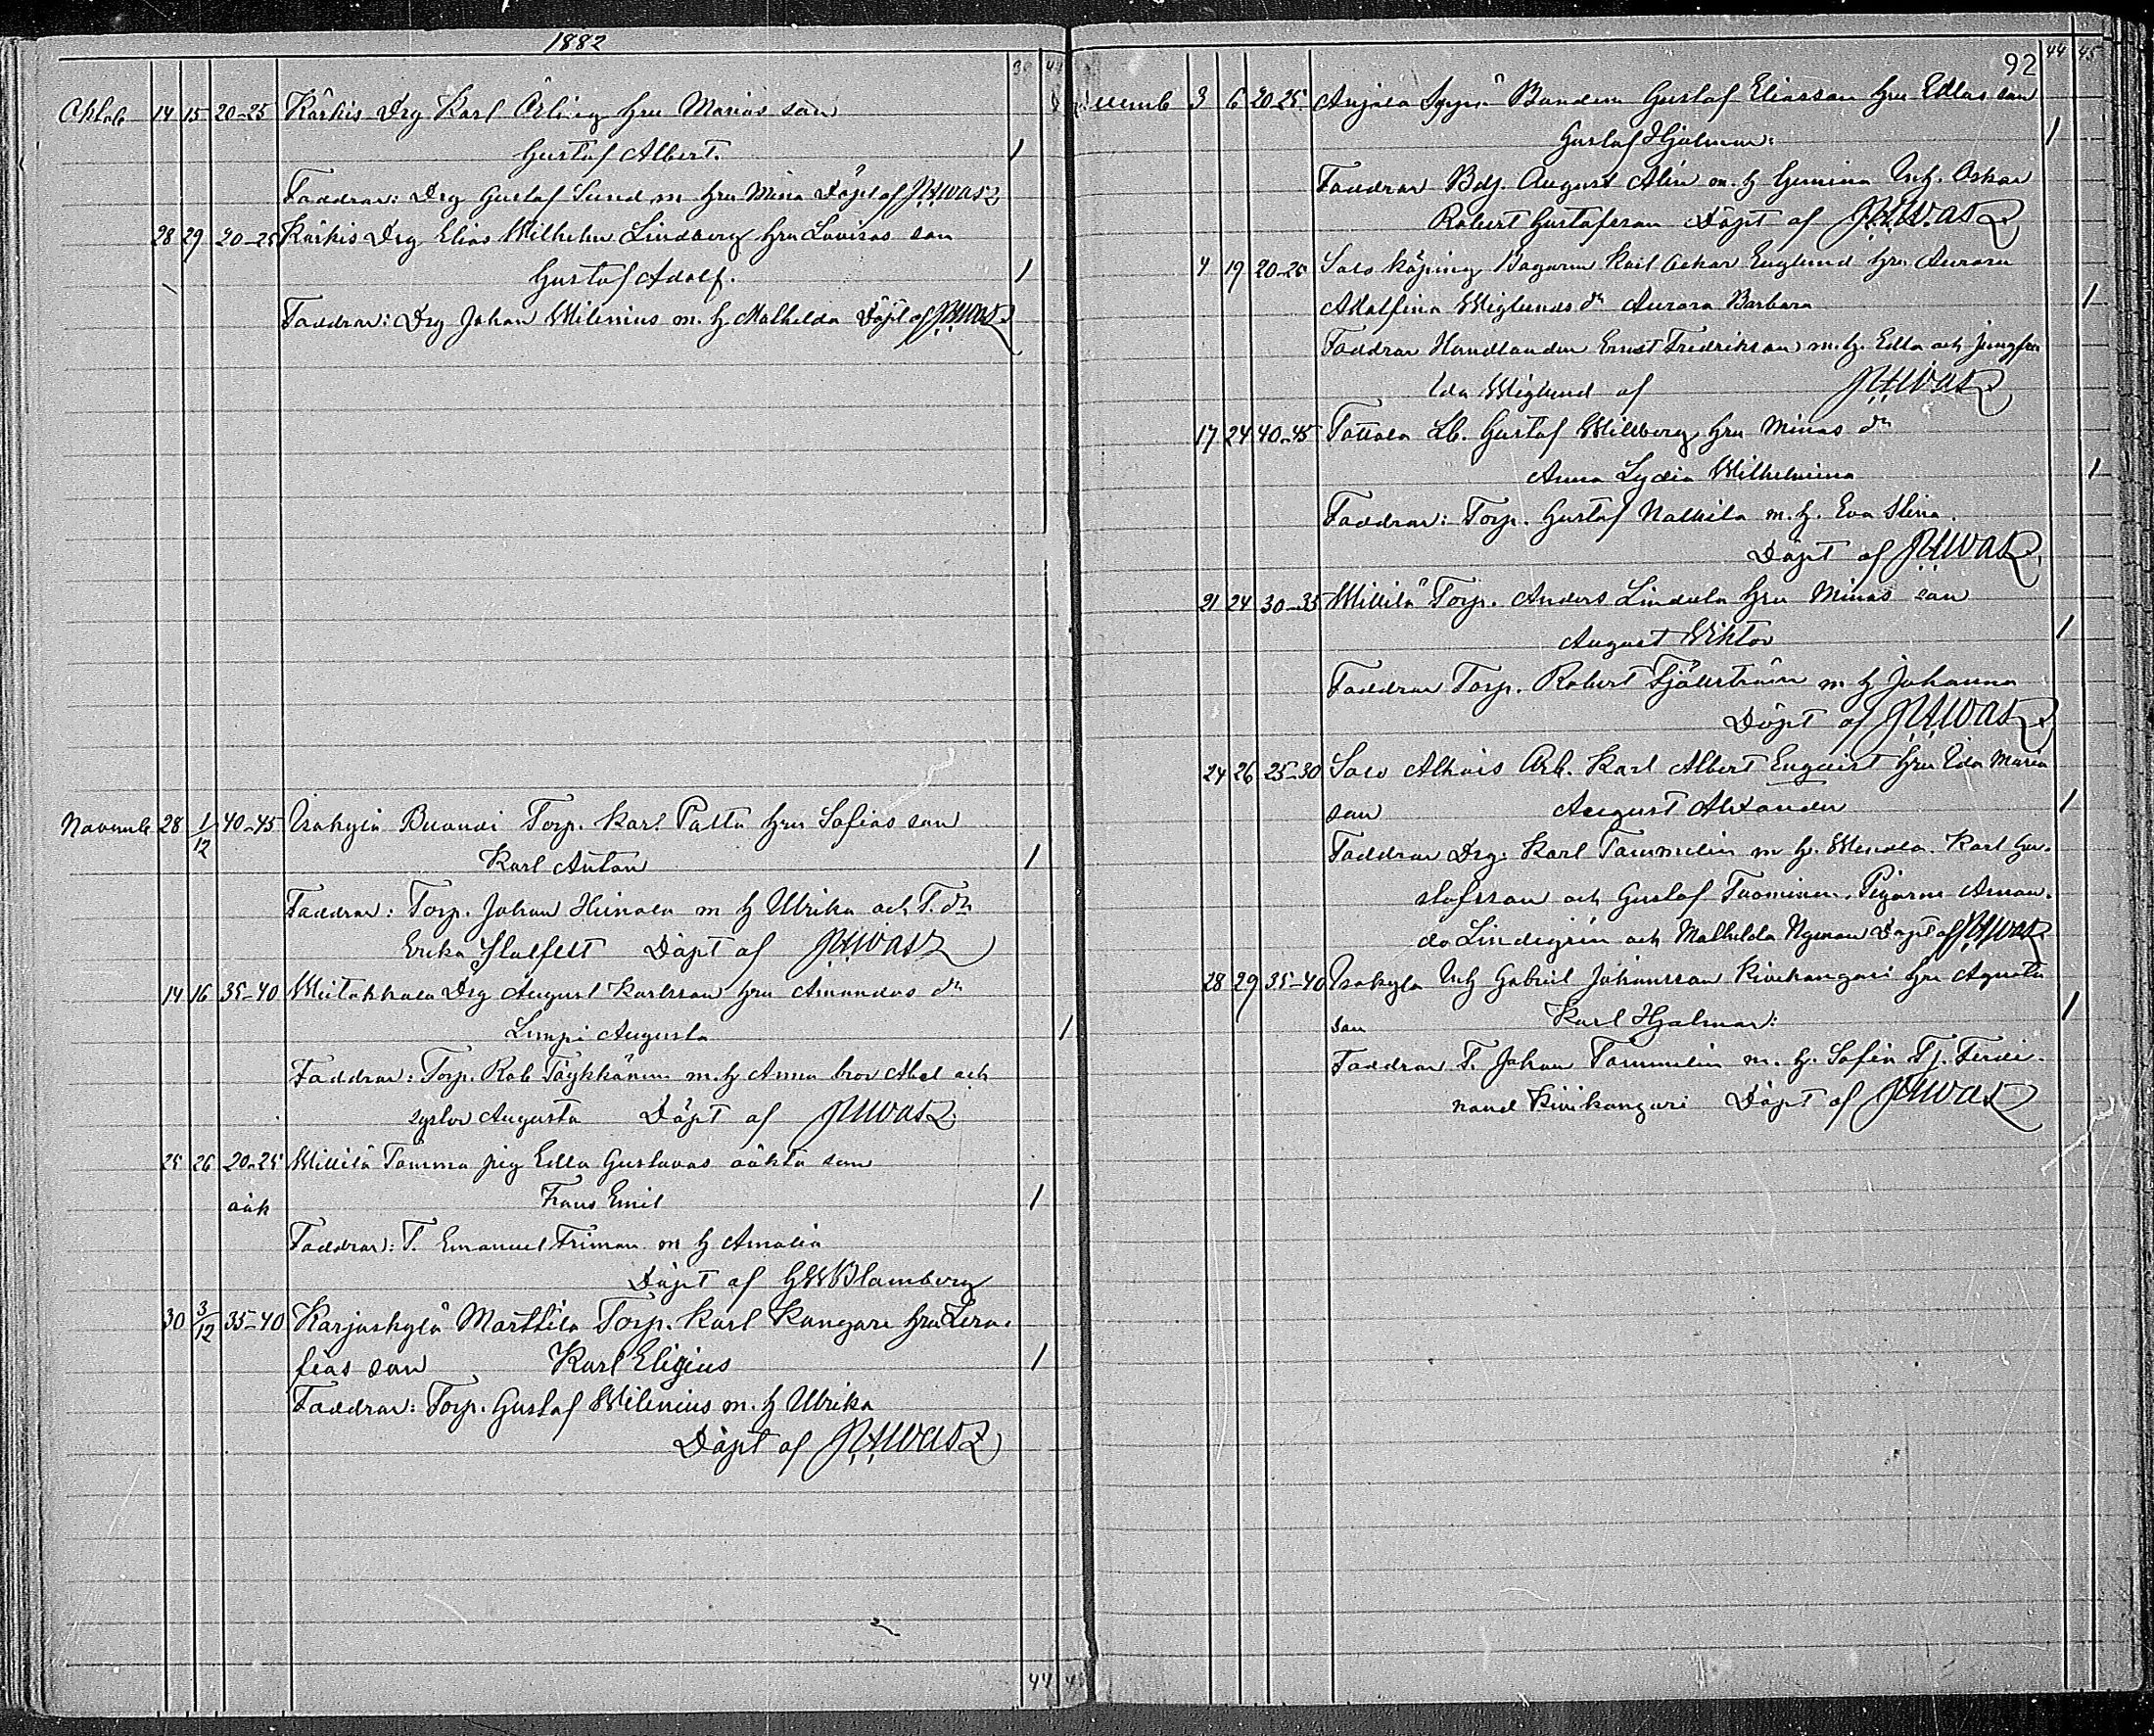 1882
Oktob 14 15 20-25 Kärkis Drg Karl Örling hru Marias son
Gustaf Albert. 1
Faddrar: Drg Gustaf Sund m hru Mina Döpt af
28 29 20-25 Kärkis Drg Elias Wilhelm Lindberg hru Lovisas son
Gustaf Adolf. 1
Faddrar: Drg Johan Milenius m. h Mathilda Döpt af
Novemb 28 1/12 40-45 Isokylä Torp. Karl hru Sofias son
Karl Anton 1
Faddrar: Torp. Johan Heinola m h Ulrika och T. dr
Erika Döpt af
14 16 35-40 Drg August Karlsson hru Amandas dr
Limpi Augusta 1
Faddrar: Torp. Rob m. h Anna bror Abel och
syster Augusta Döpt af
25 26 20-25 Willilä Tamma pig Edla Gustavas oäkta son
oäk Frans Emil 1
Faddrar: T. Emanuel Friman m h Amalia
Döpt af
30 3/12 35-40 Karjaskylä Marttila Torp. Karl Kangare hru Sera-
fias son Karl Eligius 1
Faddrar: Torp. Gustaf Milenius m. h Ulrika
Döpt af
44
92 44 45
Decemb 3 6 20-25 Anjala Bonden Gustaf Eliasson hru Edlas son
Gustaf Hjalmar: 1
Faddrar Bdj. August Alin m. h Gemina Inh. Oskar
Robert Gustafsson Döpt af
4 19 20-25 Salo köping Bagaren Karl Oskar Englund hru Aurora
Adolfina Wiglunds dr Aurora Barbara 1
Faddrar Handlanden Ernst Fredriksson m. h. Edla och jungfru
Ida Wiglund af
17 24 40-45 Tottola Lb. Gustaf Willberg hru Minas dr
Anna Lydia Wilhelmina 1
Faddrar: Torp. Gustaf m. h. Eva Stina.
Döpt af
21 24 30-35 Willilä Torp. Anders Lindula hru Minas son
August Wiktor 1
Faddrar Torp. Robert Fjäderström m h Johanna
Döpt af
24 26 25-30 Salo Alhais Arb. Karl Albert Enqvist hru Ida Maria
son August Alexander 1
Faddrar Drg. Karl Tammelin m h. Wendla. Karl Gu-
stafsson och Gustaf Tuominen. Pigorna Aman-
da Lindegrén och Mathilda Nyman Döpt af
28 29 35-40 Isokylä Inh Gabriel Johansson Kivikangari hru Agneta
son Karl Hjalmar: 1
Faddrar T. Johan Tammelin m. h. Sofia Tj. Ferdi-
nand Kivikangari Döpt af